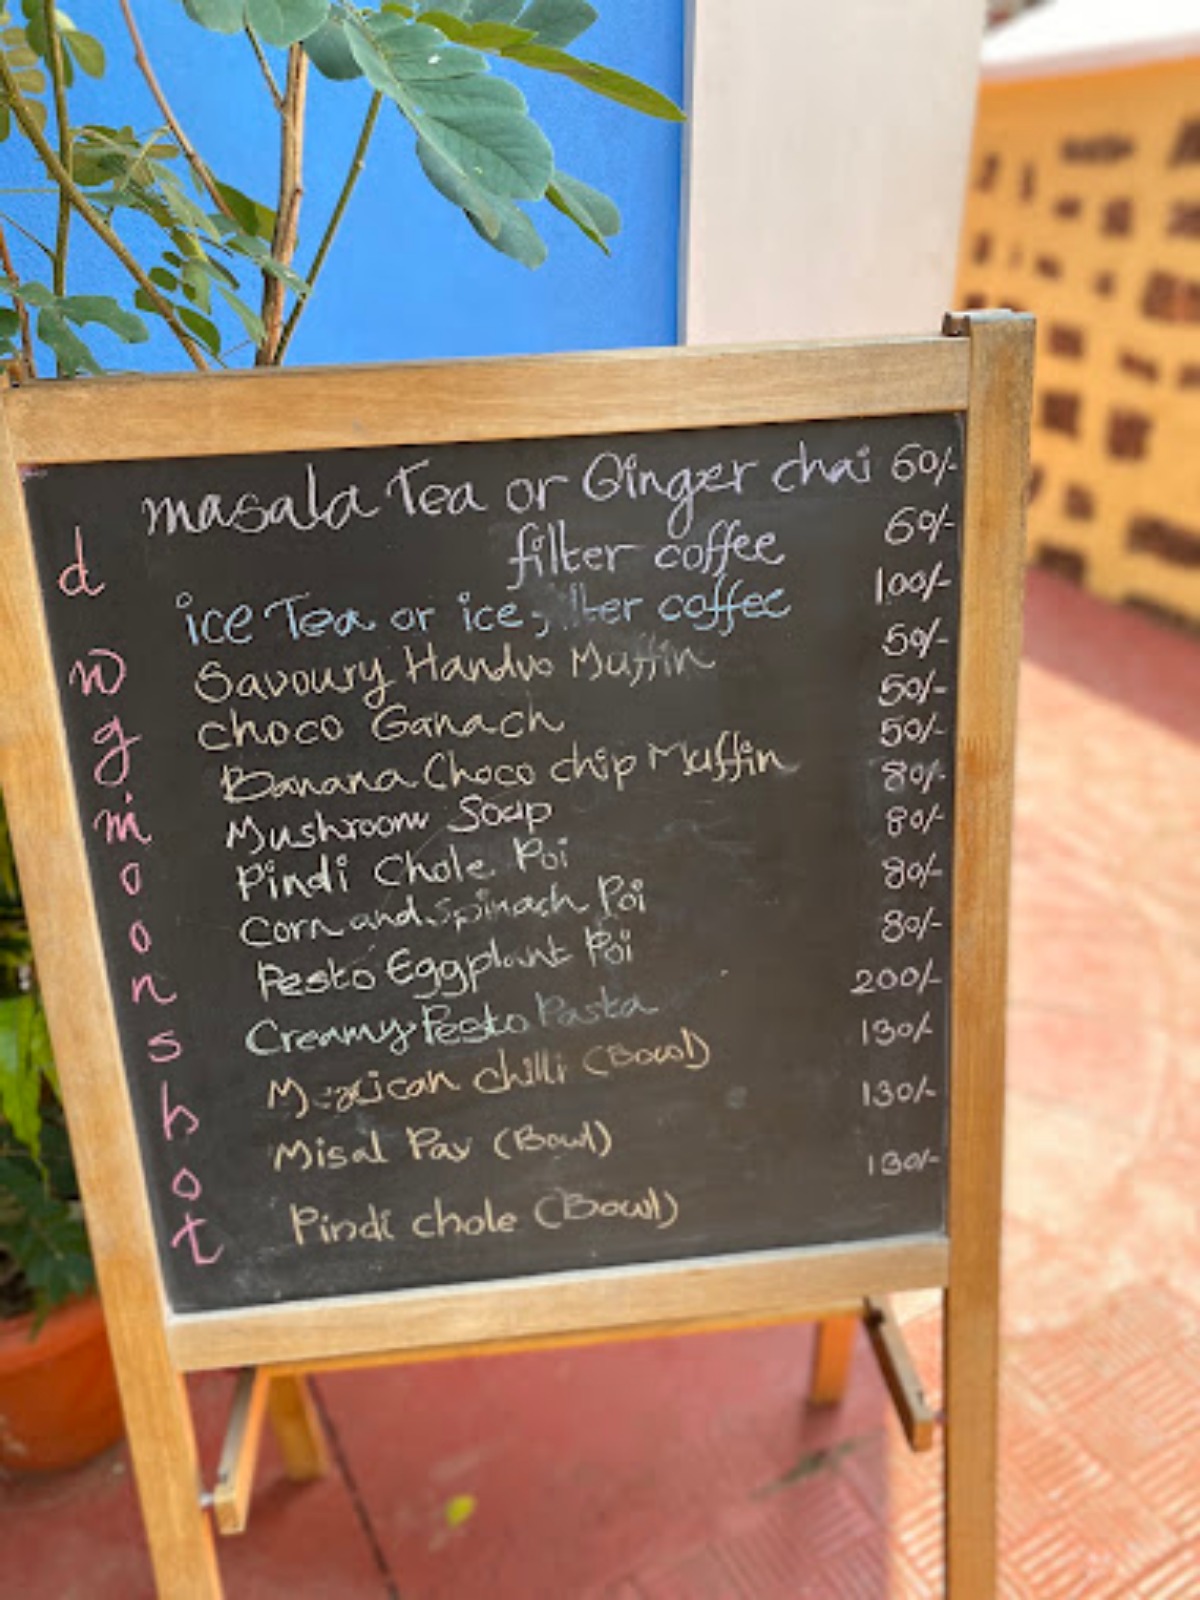 masala Tea or Ginger chai 60/-
filter coffee 60/-
ice Tea or ice filter coffee 100/-
Savoury Handvo Muffin 50/-
choco Ganach 50/-
Banana Choco chip Muffin 50/-
Mushroom Soup 80/-
Pindi Chole Poi 80/-
Corn and Spinach Poi 80/-
Pesto Eggplant Poi 80/-
Creamy Pesto Pasta 200/-
Mexican chilli (Bowl) 130/-
Misal Pav (Bowl) 130/-
Pindi chole (Bowl) 130/-
d
w
g
m
o
o
n
s
h
o
t